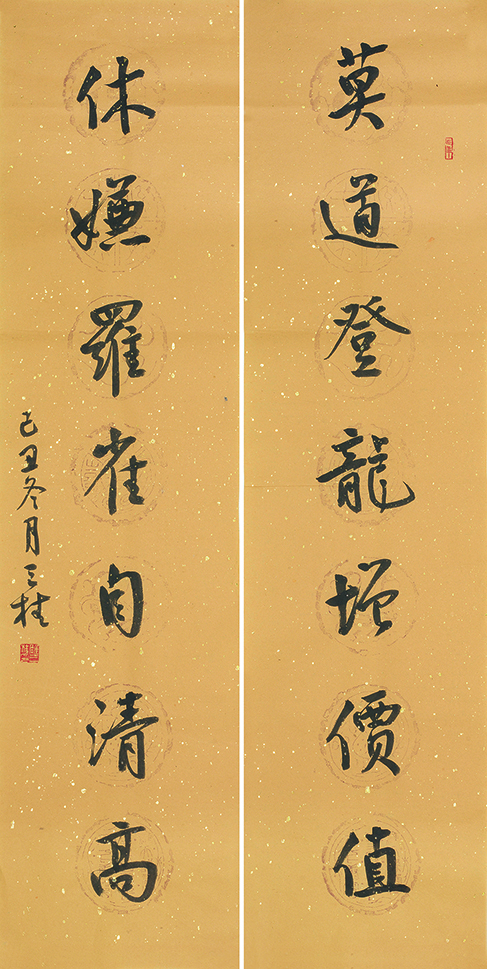 莫道登龍增價值
休嫌羅雀自清高
己丑冬月三桂